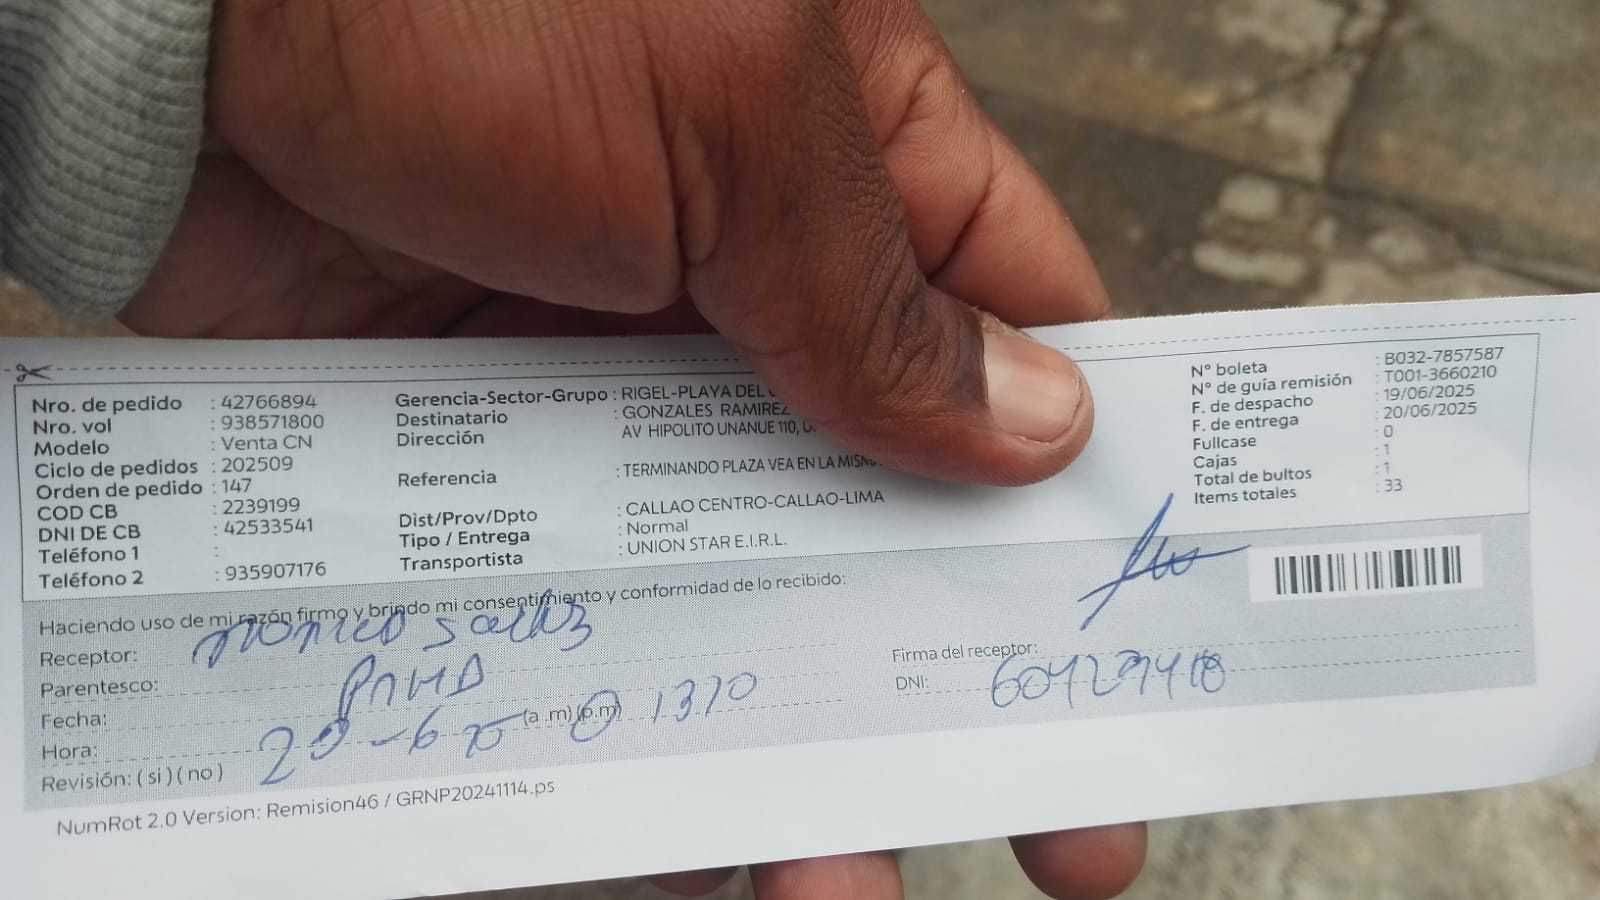 Nro. de pedido : 42766894
Nro. vol : 938571800
Modelo : Venta CN
Ciclo de pedidos : 202509
Orden de pedido : 147
COD CB : 2239199
DNI DE CB : 42533541
Teléfono 1 :
Teléfono 2 : 935907176
Gerencia-Sector-Grupo : RIGEL-PLAYA DEL
Destinatario : GONZALES RAMIREZ
Dirección AV HIPOLITO UNANUE 110,
Referencia : TERMINANDO PLAZA VEA EN LA
Dist/Prov/Dpto : CALLAO CENTRO-CALLAO-LIMA
Tipo / Entrega : Normal
Transportista : UNION STAR E.I.R.L.
N° boleta : B032-7857587
N° de guía remisión : T001-3660210
F. de despacho : 19/06/2025
F. de entrega : 20/06/2025
Fullcase : 0
Cajas : 1
Total de bultos : 1
Items totales : 33
Haciendo uso de mi razón firmo y brindo mi consentimiento y conformidad de lo recibido:
Receptor:
Parentesco:
Fecha:
Hora: (a .m) (p.m) 1310
Revisión: ( si ) ( no )
Firma del receptor:
DNI:
NumRot 2.0 Version: Remision46 / GRNP20241114.ps